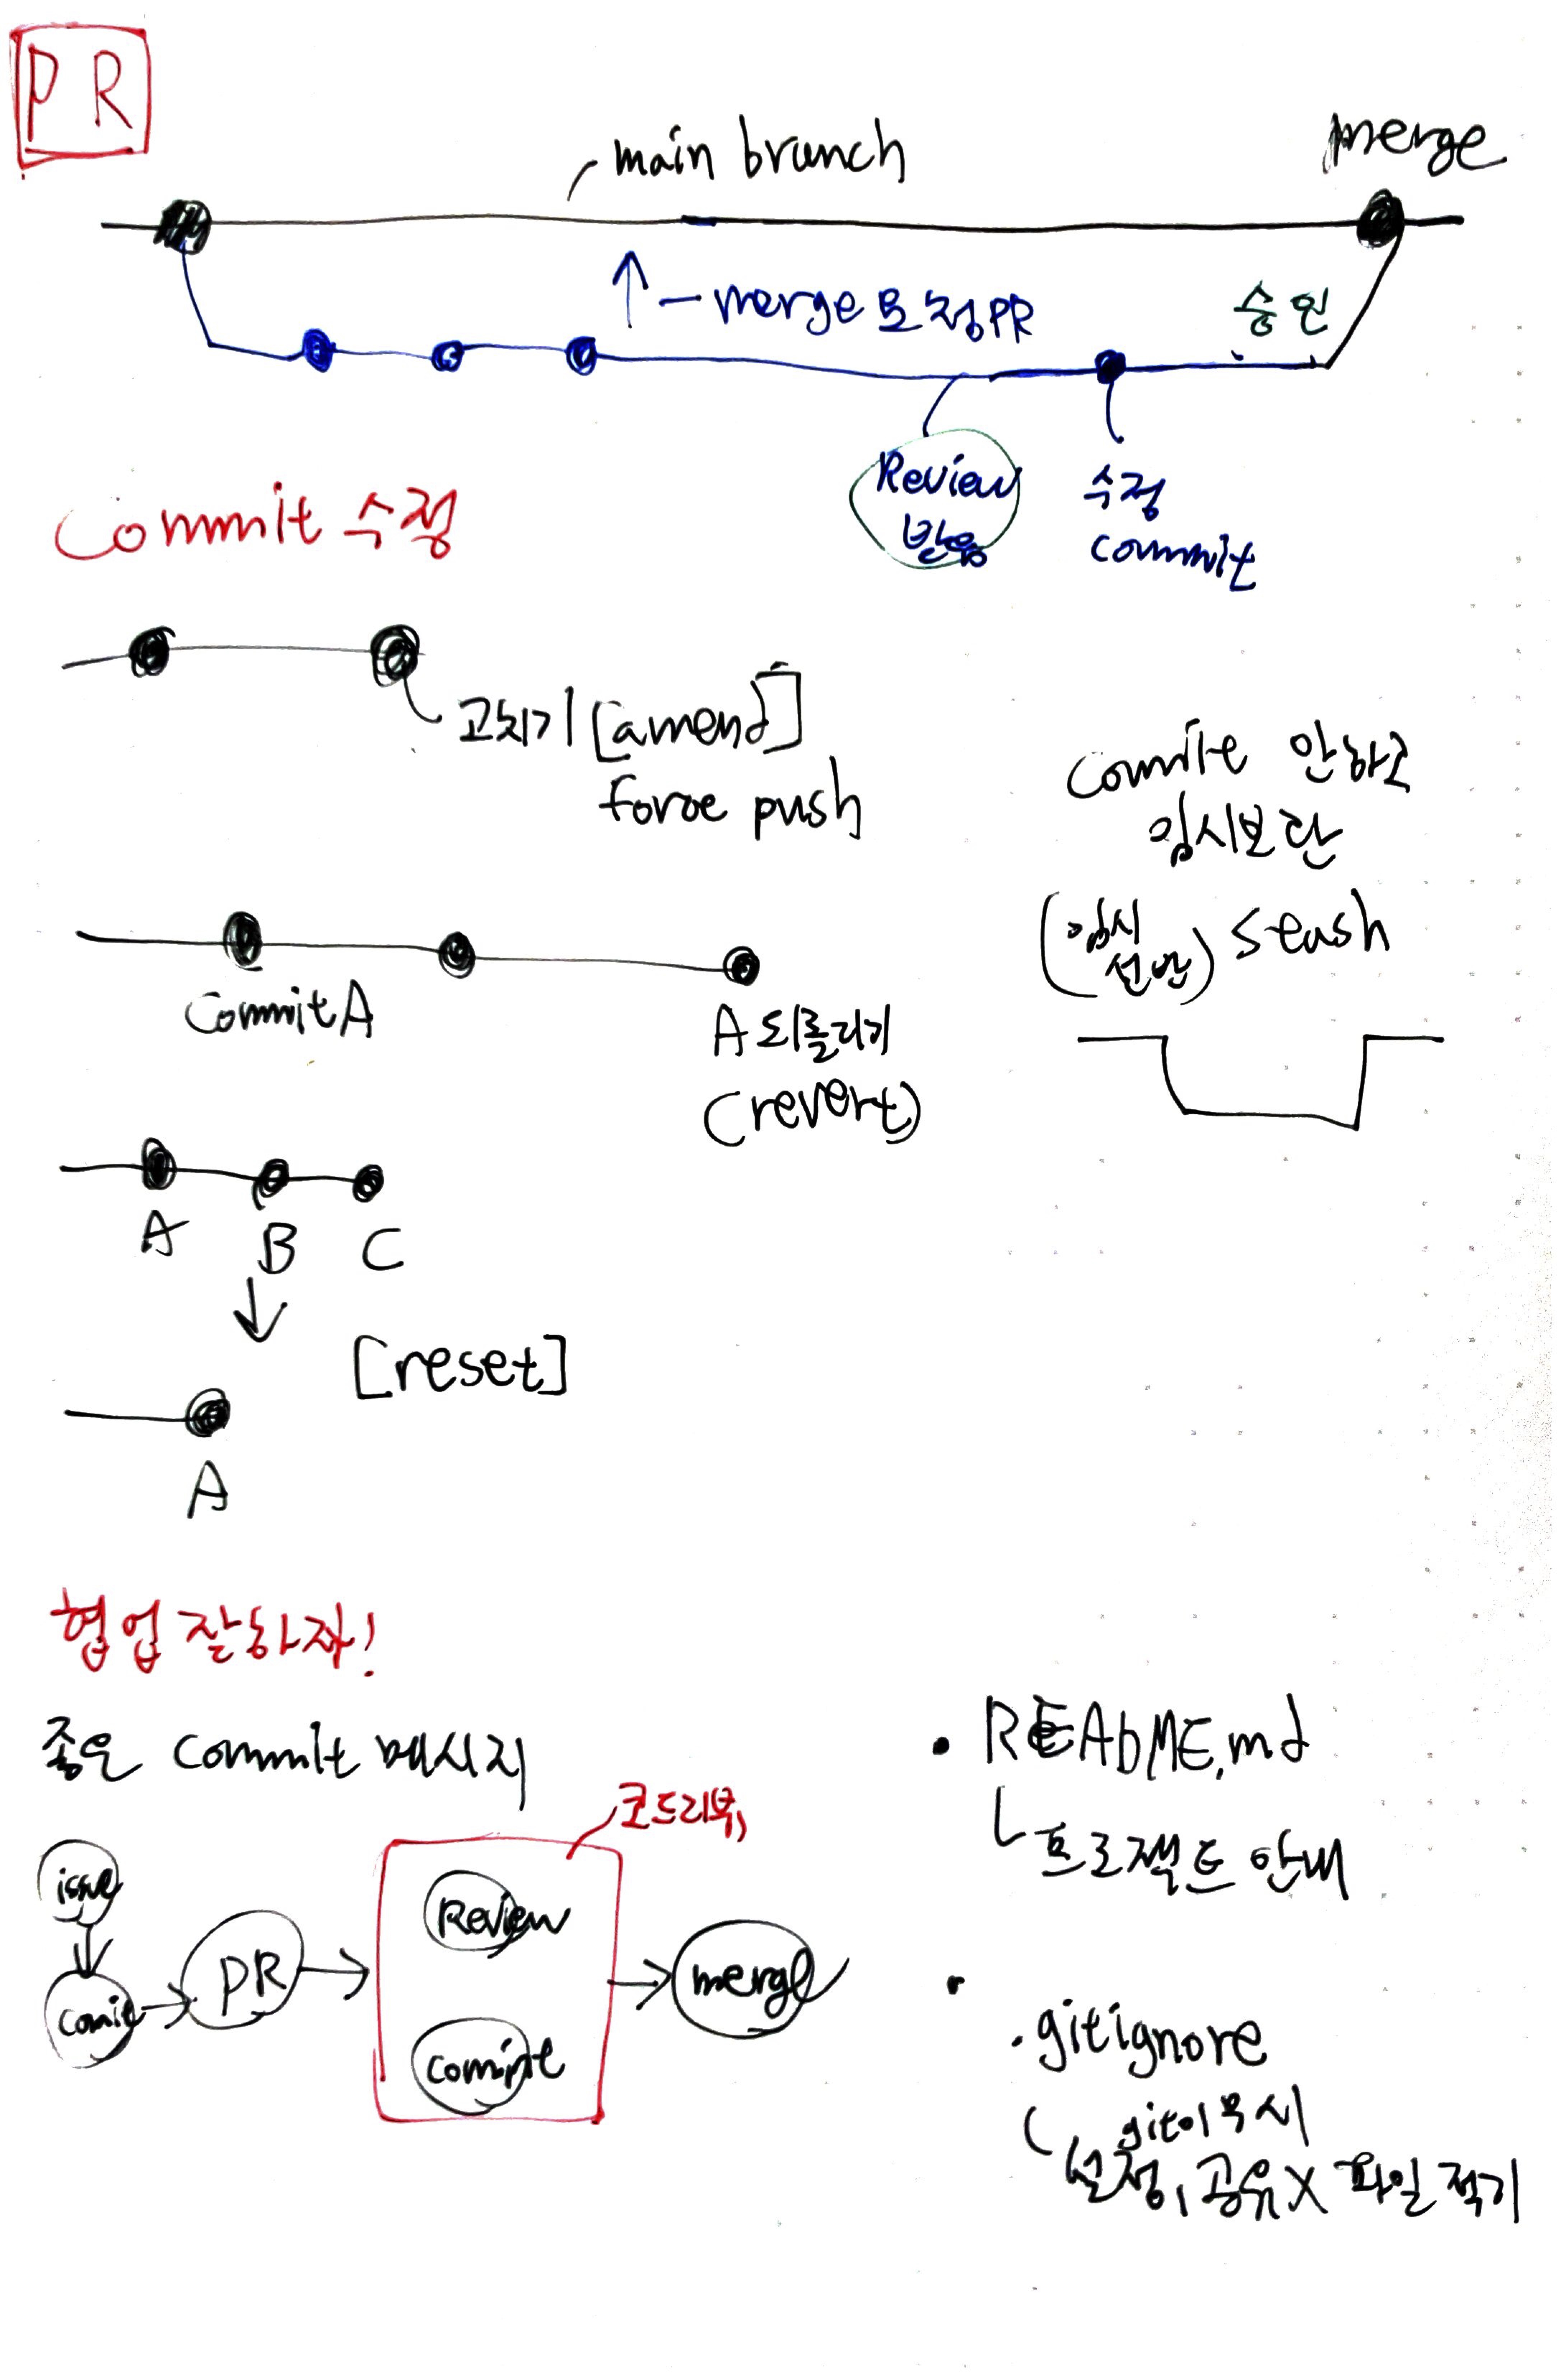 PR
main branch
merge
merge 요청 PR
승인
Review
반응
수정
commit
Commit 수정
고치기 [amend]
force push
commit 안하고
임시보관
(임시
선반) stash
Commit A
A 되돌리기
(revert)
A B C
[reset]
A
협업 잘하자!
좋은 commit 메시지
코드리뷰,
issue
Review
PR
merge
comit
commit
README.md
프로젝트 안내
.gitignore
git이 무시
설정, 공유X 파일 적기